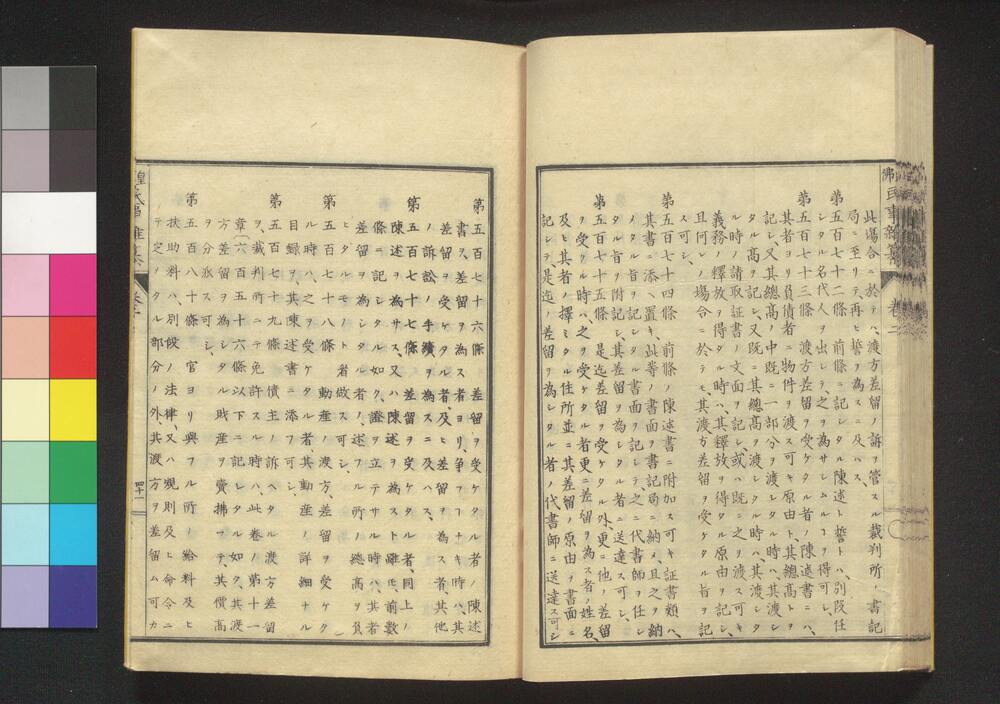 此場合ニ於テハ、渡方差留ノ訴ヲ管スル裁判所ノ書記
局ニ至リテ、再ヒ誓ヲ為スニ及ハス、
第五百七十二條 前條ニ記シタル陳述ト誓トハ、別段任
シタル名代人ヲ出シテ之ヲ為サシムルヿヲ得可シ、
第五百七十三條 渡方差留ヲ受ケタル者ノ陳述書ニハ、
其者ヨリ負債者ニ物件ヲ渡ス可キ原由ト、其總高トヲ
記シ、又其總高ノ中既ニ一部分ヲ渡シタル時ハ其渡シ
タル高ヲ記シ、又既ニ其總高ヲ渡シタル時ハ、其渡シタ
ル時ノ請取証書ノ文面ヲ記シ、或ハ既ニ之ヲ渡ス可キ
義務ノ釋放ヲ得タル時ハ、其釋放ヲ得タル原由ヲ記シ、
且何レノ塲合ニ於テモ、其渡方差留ヲ受ケタル旨ヲ記
ス可シ、
第五百七十四條 前條ノ陳述書ニ附加ス可キ証書類ハ、
其書ニ添ヘ置キ此等ノ書面ヲ書記局ニ納メ、且之ヲ納
タル旨ヲ記シタル書面ヲ記シテ、之ニ代書師ヲ任シ
タル旨ヲ附記シ、其差留ヲ為シタル者ニ送達ス可シ、
第五百七十五條 是迄差留ヲ受ケタル外、更ニ他ノ差留
ヲ受ケタル時ハ、之ヲ受ケタル者更ニ差留ヲ為ス者ノ姓名、
及ヒ其者ノ擇ミタル住所並ニ其差留ノ原由ヲ書面ニ
記シテ、是迄ノ差留ヲ為シタル者ノ代書師ニ送達ス可シ
第五百七十六條 差留ヲ受ケタル者ノ陳述
書ヲ、差留ヲ為ス者ヨリ、爭フヿナキ時ハ、其
差留ヲ受ケタル者、及ヒ差留ヲ為ス者、其他
ノ訴訟ノ手續ヲ為スニ及ハス、
第五百七十七條 差留ヲ受ケタル者、同上ノ
陳述ヲ為サス、又ハ陳述ヲ為スト雖𪜈、前數
條ニ記シタル如ク、證ヲ立テサル時ハ、其者
差留ヲ為シタル者ノ、述フル所ノ總高ヲ負
ヒタルモノト看做ス可シ、
第五百七十八條 動産ノ渡方、差留ヲ受ケタ
ル時ハ、之ヲ受ケタル者、其動産ノ詳細ナル
目録ヲ、其陳述書ニ添フ可シ、
第五百七十九條 債主ノ訴ヘタル渡方差留
ヲ、裁判所ニテ免許スル時ハ、此巻ノ第十一
章〔六百五十六條以下〕ニ記シタル如ク、其渡
方差留ヲ為シタル財産ヲ賣拂フテ、其價高
ヲ分派ス可シ、
第五百八十條 官ヨリ與フル所ノ給料及ヒ
扶助料ハ、別段ノ法律、又ハ規則及ヒ命令ニ
テ定メタル部分ノ外、其渡方ヲ差留ム可カ
四十一